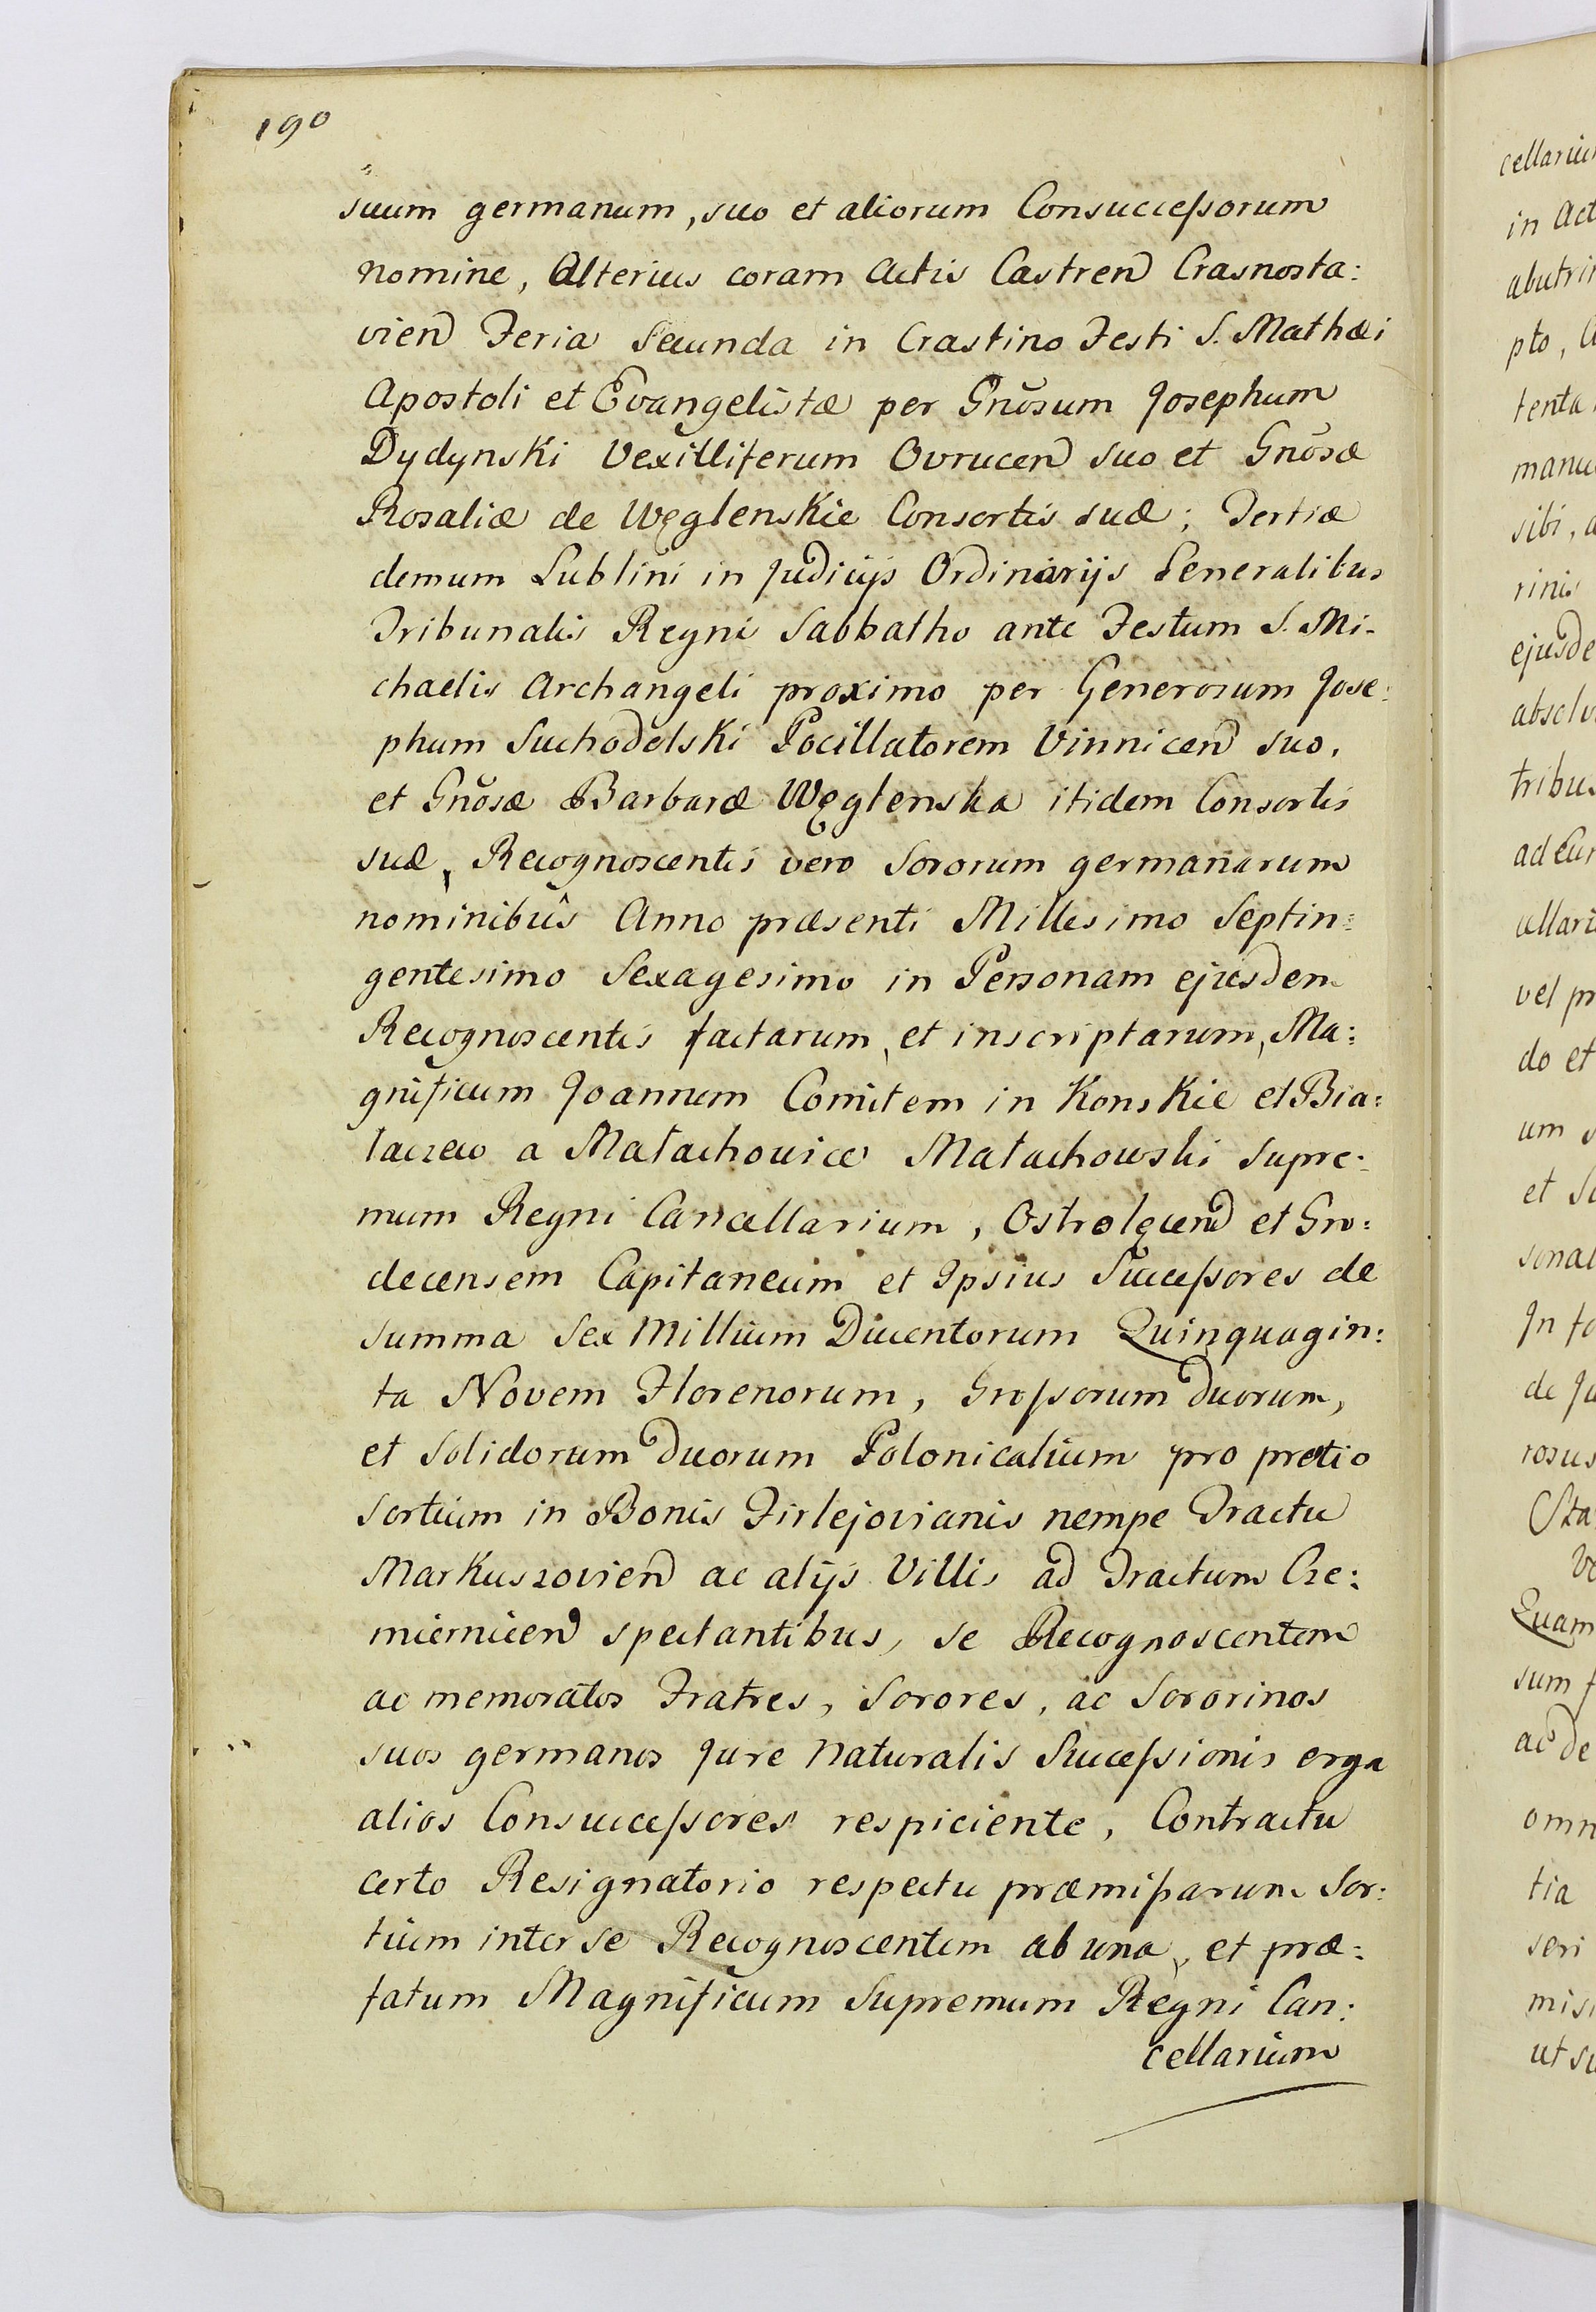 190
suum germanum, suo et aliorum Consuccessorum
nomine, Alterius coram Actis Castren Crasnosta:
vien Feria Secunda in Crastino Festi S. Mathæi
Apostoli et Evangelistæ per Gnosum Josephum
Dydynski Vexilliferum Ovrucen suo et Gnosæ
Rosaliæ de Węglenskie Consortis suæ; Tertiæ
demum Lublini in Judicijs Ordinarijs Generalibus
Tribunalis Regni Sabbatho ante Festum S. Mi-
chaelis Archangeli proximo per Generosum Jose:
phum Suchodolski Pocillatorem Vinnicen suo,
et Gnosæ Barbaræ Węglenska itidem Consortis
suæ, Recognoscentis vero Sororum germanarum
nominibus Anno præsenti Millesimo Septin:
gentesimo Sexagesimo in Personam ejusdem
Recognoscentis factarum, et inscriptarum, Ma:
gnificum Joannem Comitem in Konskie et Bia:
łaczew a Małachowice Małachowski Supre:
mum Regni Cancellarium, Ostrolęcen et Gro:
decensem Capitaneum et Ipsius Successores de
summa Sex Millium Ducentorum Quinquagin:
ta Novem Florenorum, Grossorum duorum,
et Solidorum duorum Polonicalium pro pretio
Sortium in Bonis Firlejovianis nempe Tractu
Markuszovien ac alijs Villis ad Tractum Cze:
miernicen spectantibus, se Recognoscentem
ac memoratos Fratres, Sorores, ac Sororinos
suos germanos Jure Naturalis Successionis erga
alios Consuccessores respiciente, Contractu
certo Resignatorio respectu præmissarum Sor:
tium inter se Recognoscentem ab una, et præ:
fatum Magnificum Supremum Regni Can:
cellarium
cellariu
in Act
abutri
pto,
tenta
manu
sibi, a
rinis
ejusde
absolv
tribus
ad Cur
cellari
vel pr
do et
um s
et S
sonal
In fo
de Ju
rosus
Sta
Ve
Quam
sum f
ac de
omn
tia
seri
misi
ut su